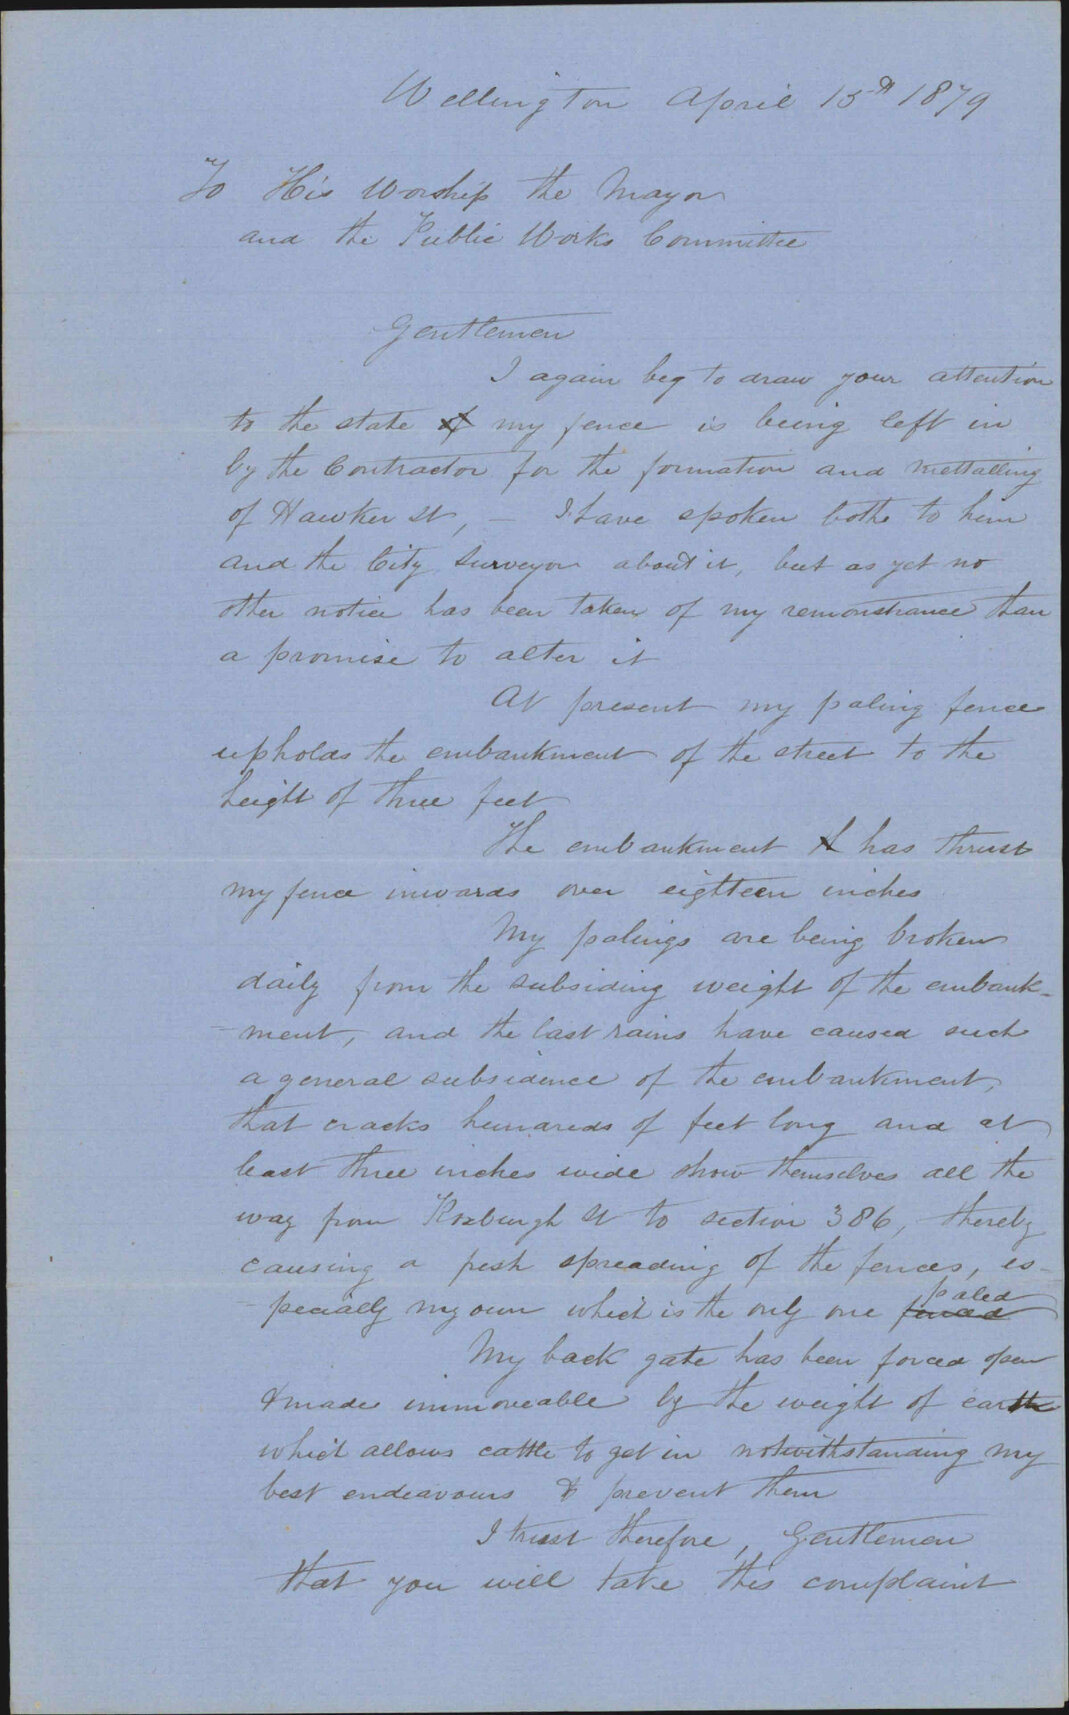 Wellington April 15th 1879
To His Worship the Mayor
and the Public Works Committee
Gentlemen
I again beg to draw your attention
to the state of my fence is being left in
by the Contractor for the formation and mettalling
of Hawker St, — I have spoken bothe to him
and the City Surveyor about it, but as yet no
other notice has been taken of my remonstrance than
a promise to alter it
At present my paling fence
upholds the embankment of the street to the
height of three feet
The embankment has thrust
my fence inwards over eighteen inches
My palings are being broken
daily from the subsiding weight of the embank-
-ment, and the last rains have caused such
a general subsidence of the embankment,
that cracks hundreds of feet long and at
least three inches wide show themselves all the
way from Roxburgh St to section 386, thereby
causing a fresh spreading of the fences, es-
-pecially my own which is the only one fenced paled
My back gate has been forced open
& made immoveable by the weight of earth
which allows cattle to get in notwithstanding my
best endeavours to prevent them
I trust therefore, Gentlemen
that you will take this complaint